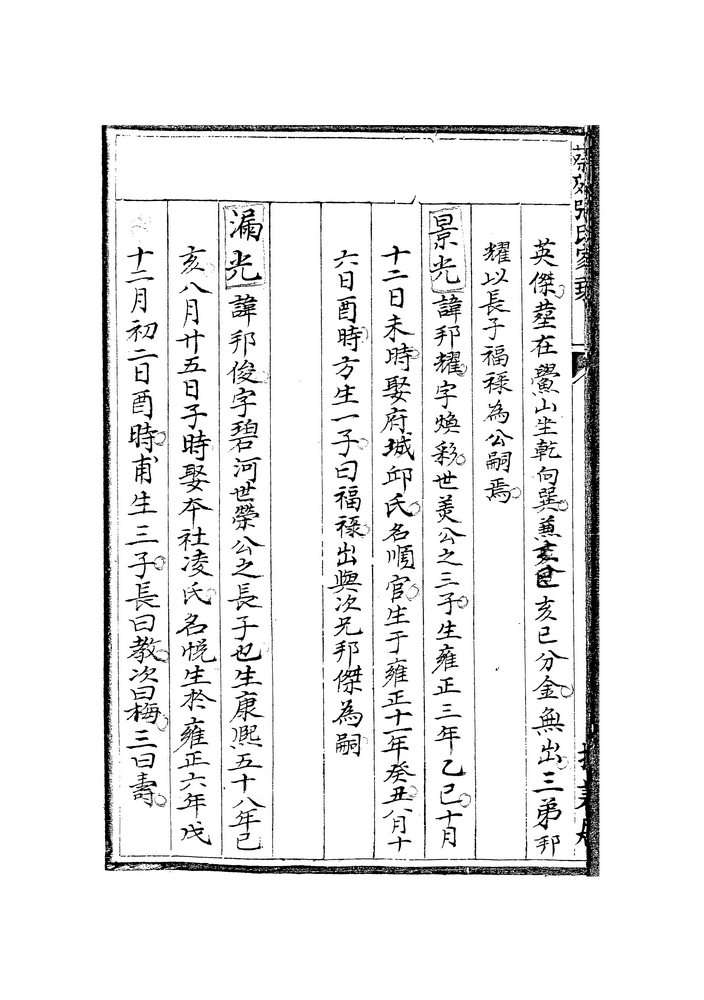 英傑塟在鱟山坐乾向巽兼亥巳亥巳分金無出三弟邦
耀以長子福祿為公嗣焉
景光諱邦耀字煥彩世羙公之三子生雍正三年乙巳十月
十二日未時娶府城邱氏名順官生于雍正十一年癸丑八月十
六日酉時方生一子曰福祿出與次兄邦傑為嗣
漏光諱邦俊字碧河世榮公之長子也生康熙五十八年己
亥八月廿五日子時娶本社凌氏名悅生於雍正六年戊
十二月初二日酉時甫生三子長曰教次曰梅三曰壽